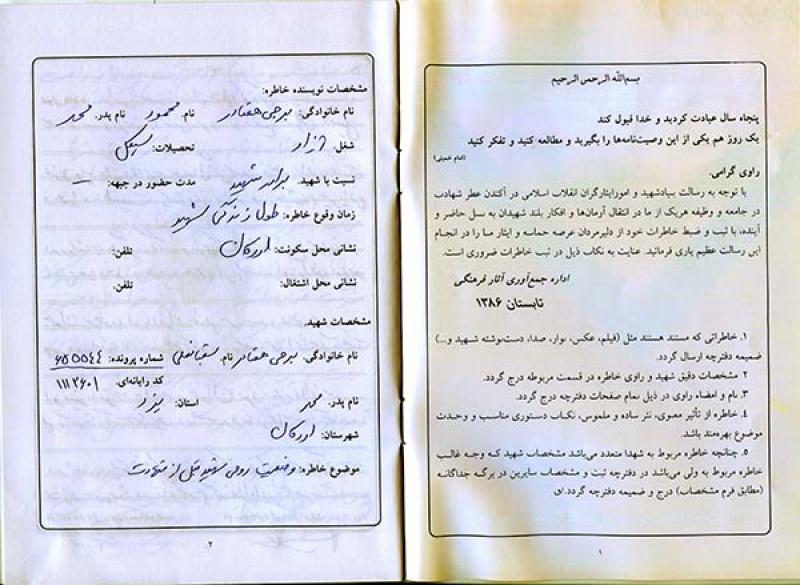 بسم‌الله الرحمن الرحیم
پنجاه سال عبادت کردید و خدا قبول کند
یک روز هم یکی از این وصیت‌نامه‌ها را بگیرید و مطالعه کنید و تفکر کنید
(امام خمینی)
راوی گرامی.
با توجه به رسالت بنیادشهید و امورایثارگران انقلاب اسلامی در آکندن عطر شهادت
در جامعه و وظیفه هریک از ما در انتقال آرمان‌ها و افکار بلند شهیدان به نسل حاضر و
آینده، با ثبت و ضبط خاطرات خود از دلیرمردان عرصه حماسه و ایثار ما را در انجام
این رسالت عظیم یاری فرمائید. عنایت به نکات ذیل در ثبت خاطرات ضروری است.
اداره جمع‌آوری آثار فرهنگی
تابستان ۱۳۸۶
۱. خاطراتی که مستند هستند مثل (فیلم، عکس، نوار، صدا، دست‌نوشته شهید و...)
ضمیمه دفترچه ارسال گردد.
۲ مشخصات دقیق شهید و راوی خاطره در قسمت مربوطه درج گردد.
۳. نام و امضاء راوی در ذیل تمام صفحات دفترچه درج گردد.
۴. خاطره از تأثیر معنوی، نثر ساده و ملموس، نکات دستوری مناسب و وحدت
موضوع بهره‌مند باشد.
۵. چنانچه خاطره مربوط به شهدا متعدد می‌باشد مشخصات شهید که وجه غالب
خاطره مربوط به ولی می‌باشد در دفترچه ثبت و مشخصات سایرین در برگه جداگانه
(مطابق فرم مشخصات) درج و ضمیمه دفترچه گردد.
۱
مشخصات نویسنده خاطره:
نام خانوادگی: نام. محمود نام پدر. محمد
شغل. تحصیلات:
نسبت با شهید. برادر شهید مدت حضور در جبهه: —
زمان وقوع خاطره: طول زندگی شهید
نشانی محل سکونت: اردکان تلفن:
نشانی محل اشتغال: تلفن:
مشخصات شهید.
نام خانوادگی: نام. شماره پرونده:
کد رایانه‌ای. ۱۱۱۲۶۰۱
نام پدر. محمد استان: یزد
شهرستان: اردکان
موضوع خاطره: وضعیت روحی شهید قبل از شهادت
۲